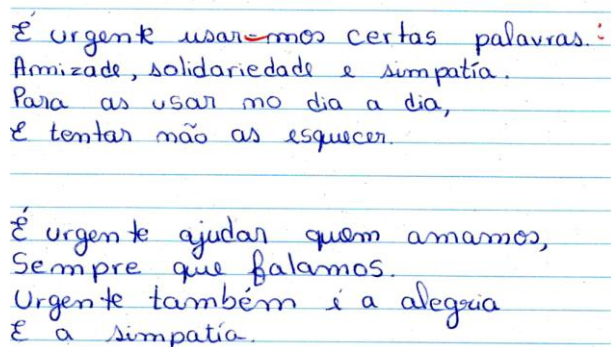 É urgente usar-mos certas palavras.:
Amizade, solidariedade e simpatía.
Para as usar no dia a dia,
E tentar não as esquecer.
É urgente ajudar quem amamos,
Sempre que falamos.
Urgente também é a alegria
E a simpatía.